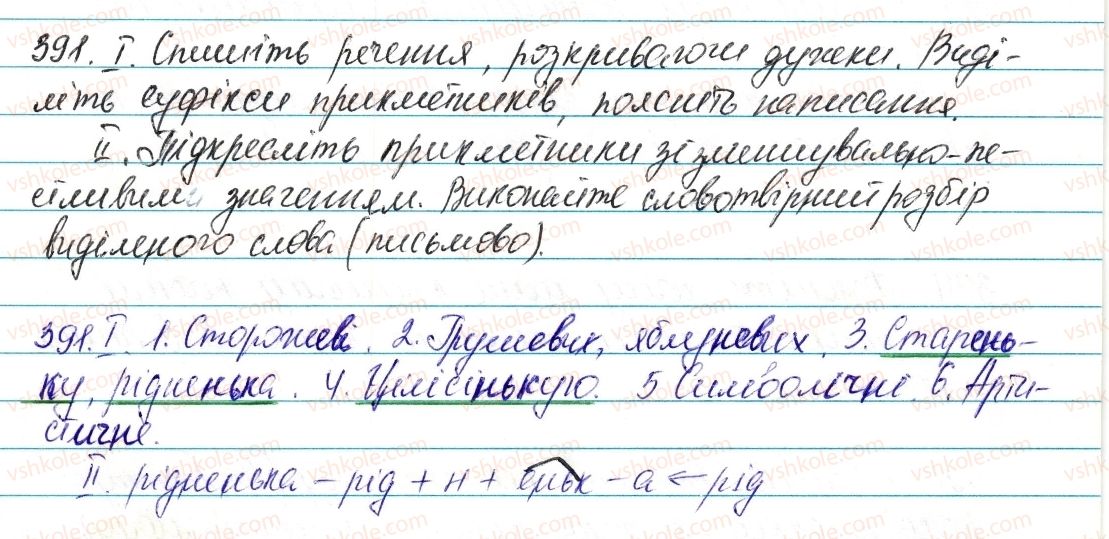 391. I. Спишіть речення, розкриваючи дужки. Виді-
літь суфікси прикметників, поясніть написання.
II. Підкресліть прикметники зі зменшувально-пе-
стливим значенням. Виконайте словотвірний розбір
виділеного слова (письмово).
391. I. 1. Сторожеві. 2. Грушевих, яблуневих. 3. Старень-
ку, рідненька. 4. Цілісінькую. 5 Символічні. 6. Арти-
стичне.
II. рідненька – рід + н + еньк – а ← рід